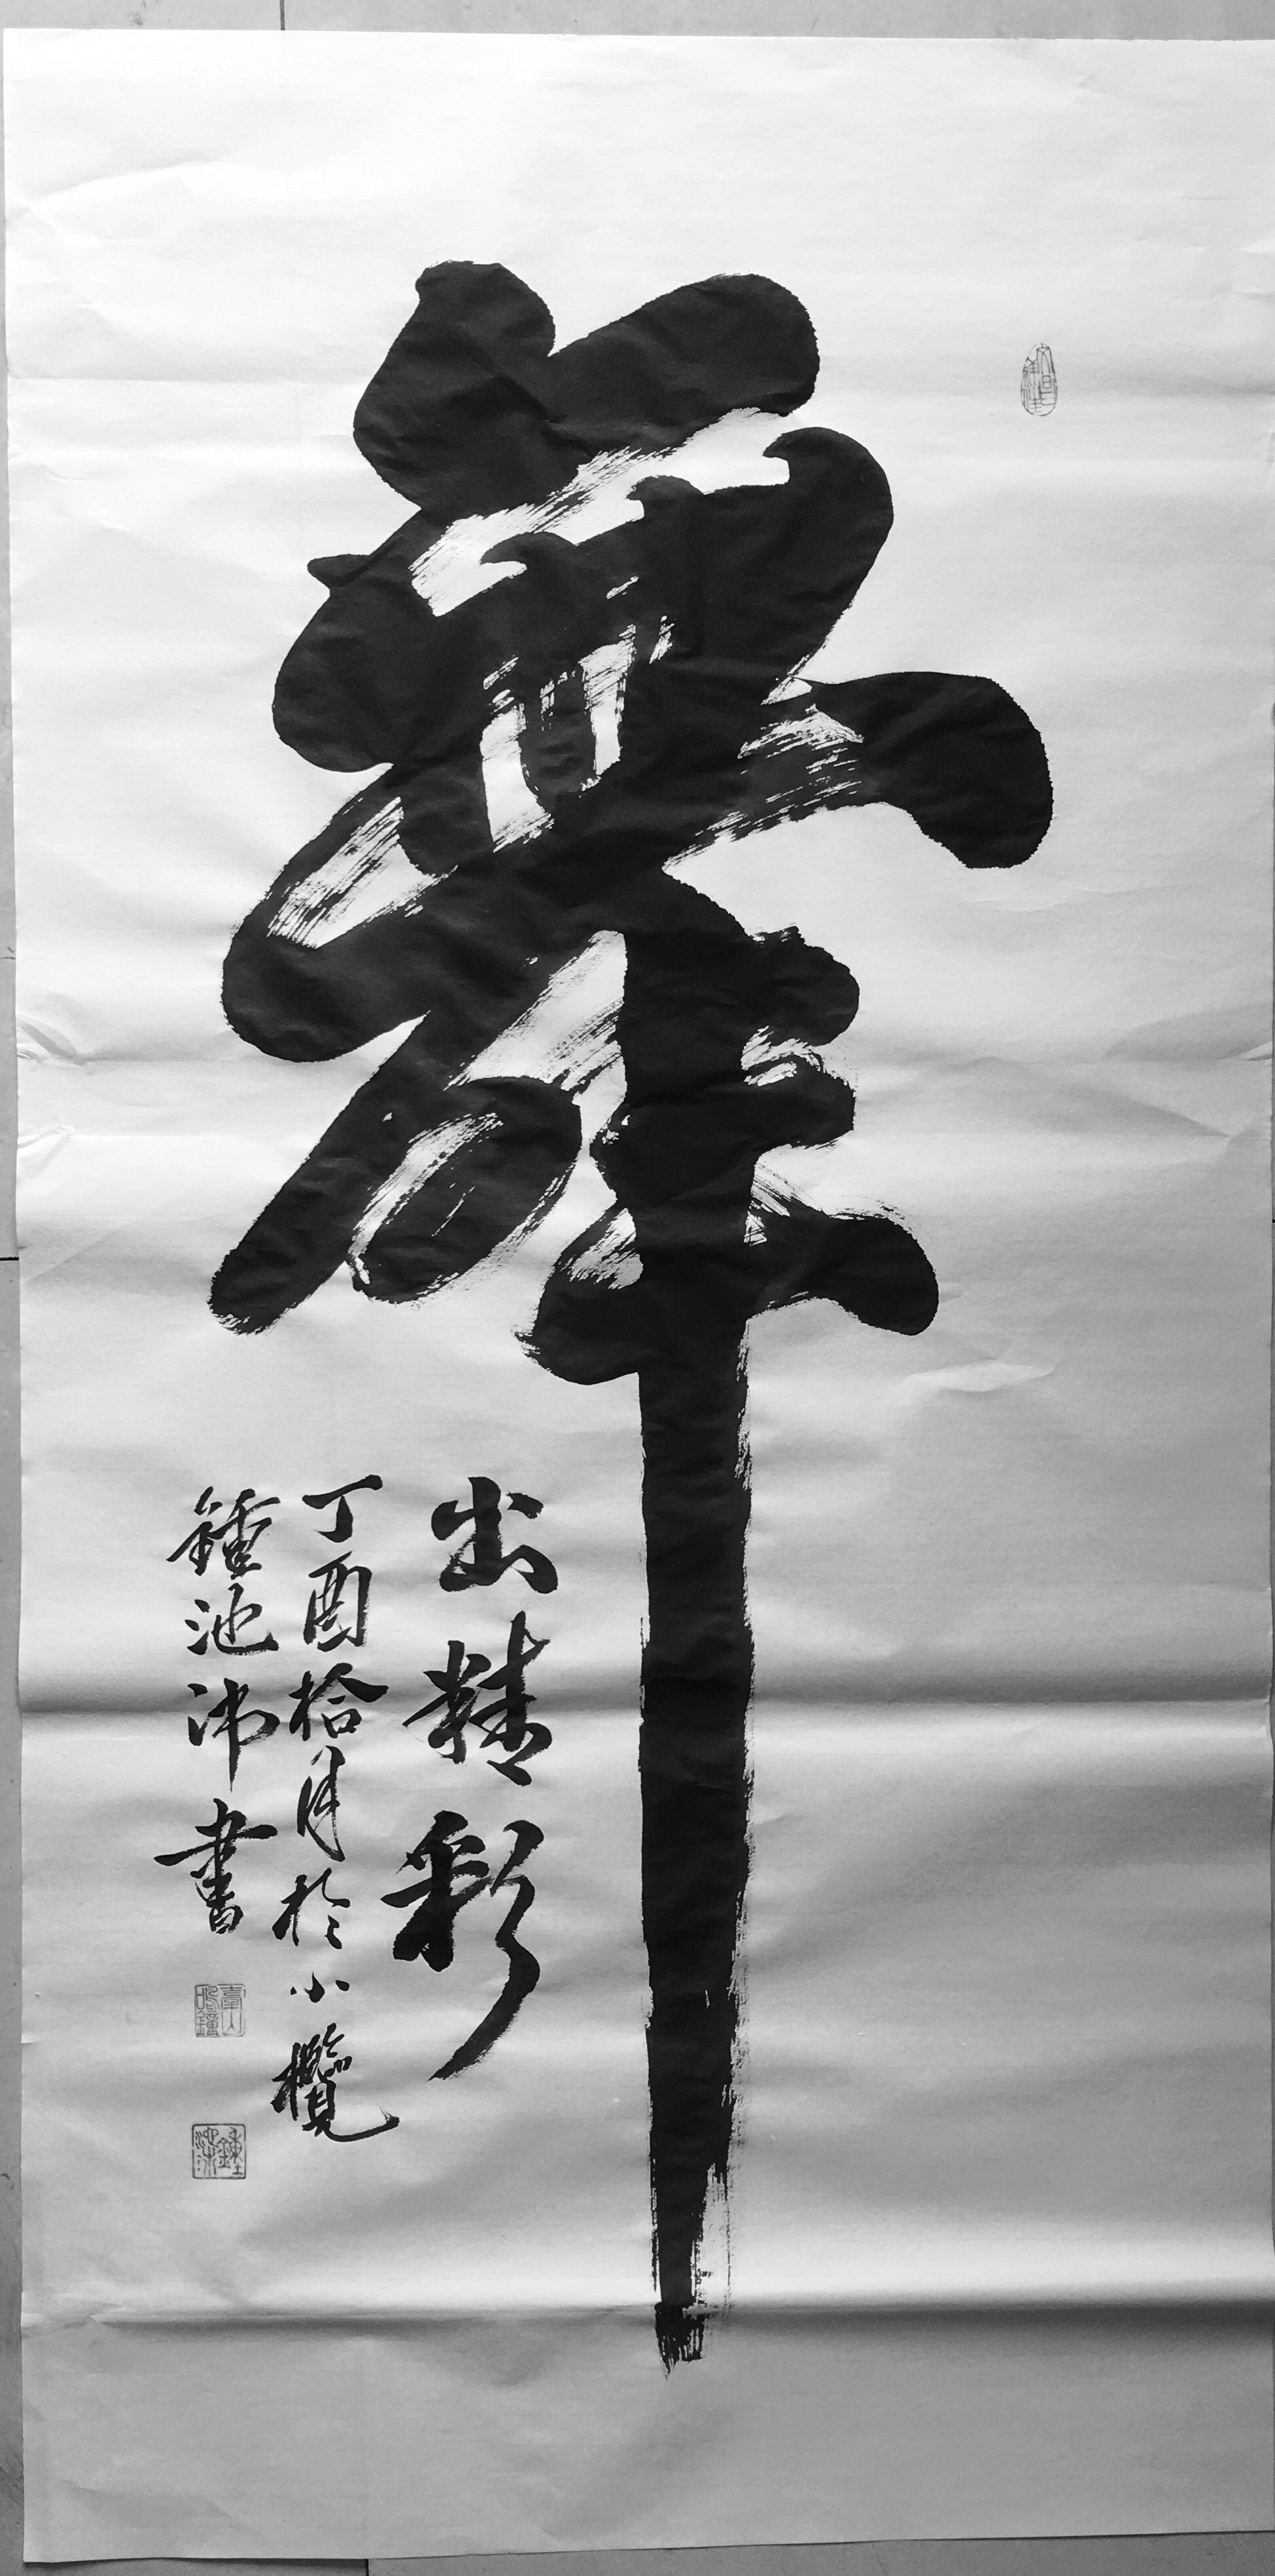 舞
出精彩
丁酉拾月於小欖
鍾池沛書